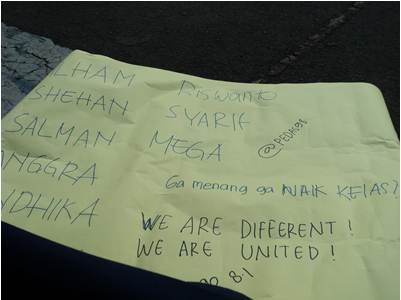 LHAM
SHEHAN
SALMAN
ANGGRA
DHIKA
Riswanto
SYARIF
MEGA
@PEDAS98
Ga menang ga NAIK KELAS?
WE ARE DIFFERENT !
WE ARE UNITED !